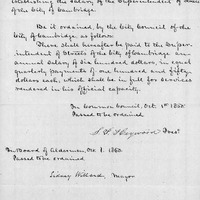 establishing the Salary of the Superintendent of Streets
of the City of Cambridge.
Be it ordained, by the City Council of the
City of Cambridge as follows:
There shall hereafter be paid to the Super-
intendent of Streets of the City of Cambridge an
annual Salary of six hundred dollars, in equal
quarterly payments of one hundred and fifty
dollars each, which shall be in full for services
rendered in his official capacity.
In Common Council, Oct. 1st 1850
Passed to be ordained
Prest.
In Board of Aldermen, Oct. 8. 1850.
Passed to be ordained
Sidney Willard, Mayor